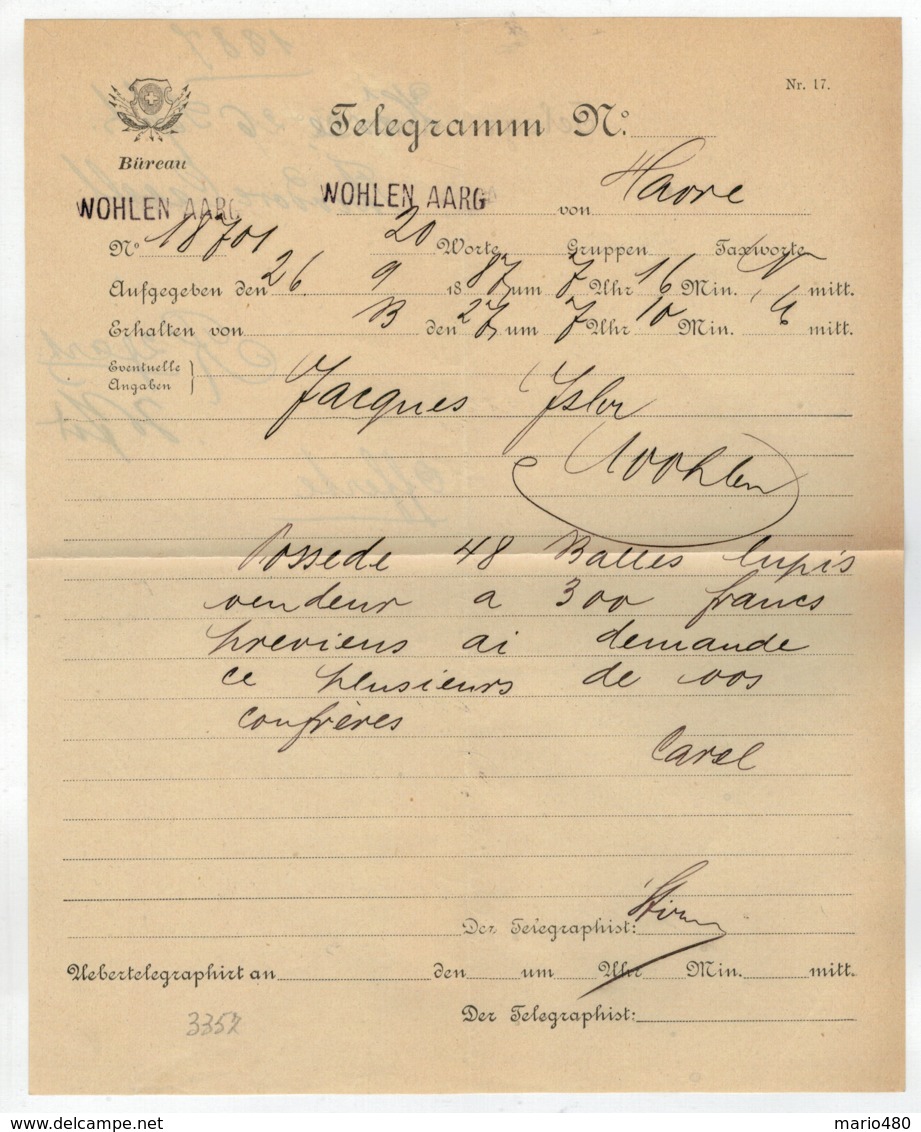 1887
Nr. 17.
Telegramm No.
Büreau
WOHLEN AARG
WOHLEN AARG
von Havre
No 18701 20 Worte Gruppen Taxworte
Aufgegeben den 26. 9 1887 um 7 Uhr 16 Min. mitt.
Erhalten von B den 27 um 7 Uhr 10 Min. mitt.
Eventuelle
Angaben
Jacques Isler
Woohlen
Possede 48 Balles lupis
vendeur a 300 francs
previens ai demande
ce plusieurs de vos
confrères
Carel
Der Telegraphist:
Uebertelegraphirt an den um Uhr Min. mitt.
Der Telegraphist:
3357
mario480